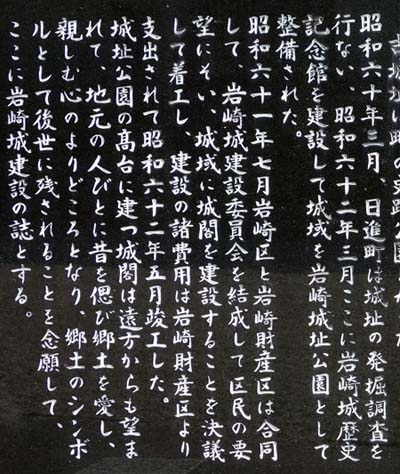 昭和六十年三月、日進町は城址の発掘調査を
行ない、昭和六十二年三月ここに岩崎城歴史
記念館を建設して城域を岩崎城址公園として
整備された。
昭和六十一年七月岩崎区と岩崎財産区は合同
して、岩崎城建設委員会を結成して区民の要
望にそい、城域に城閣を建設することを決議
して着工し、建設の諸費用は岩崎財産区より
支出されて昭和六十二年五月竣工した。
城址公園の高台に建つ城閣は遠方からも望ま
れて、地元の人びとに昔を偲び郷土を愛し、
親しむ心のよりどころとなり、郷土のシンボ
ルとして後世に残されることを念願して、
ここに岩崎城建設の誌とする。